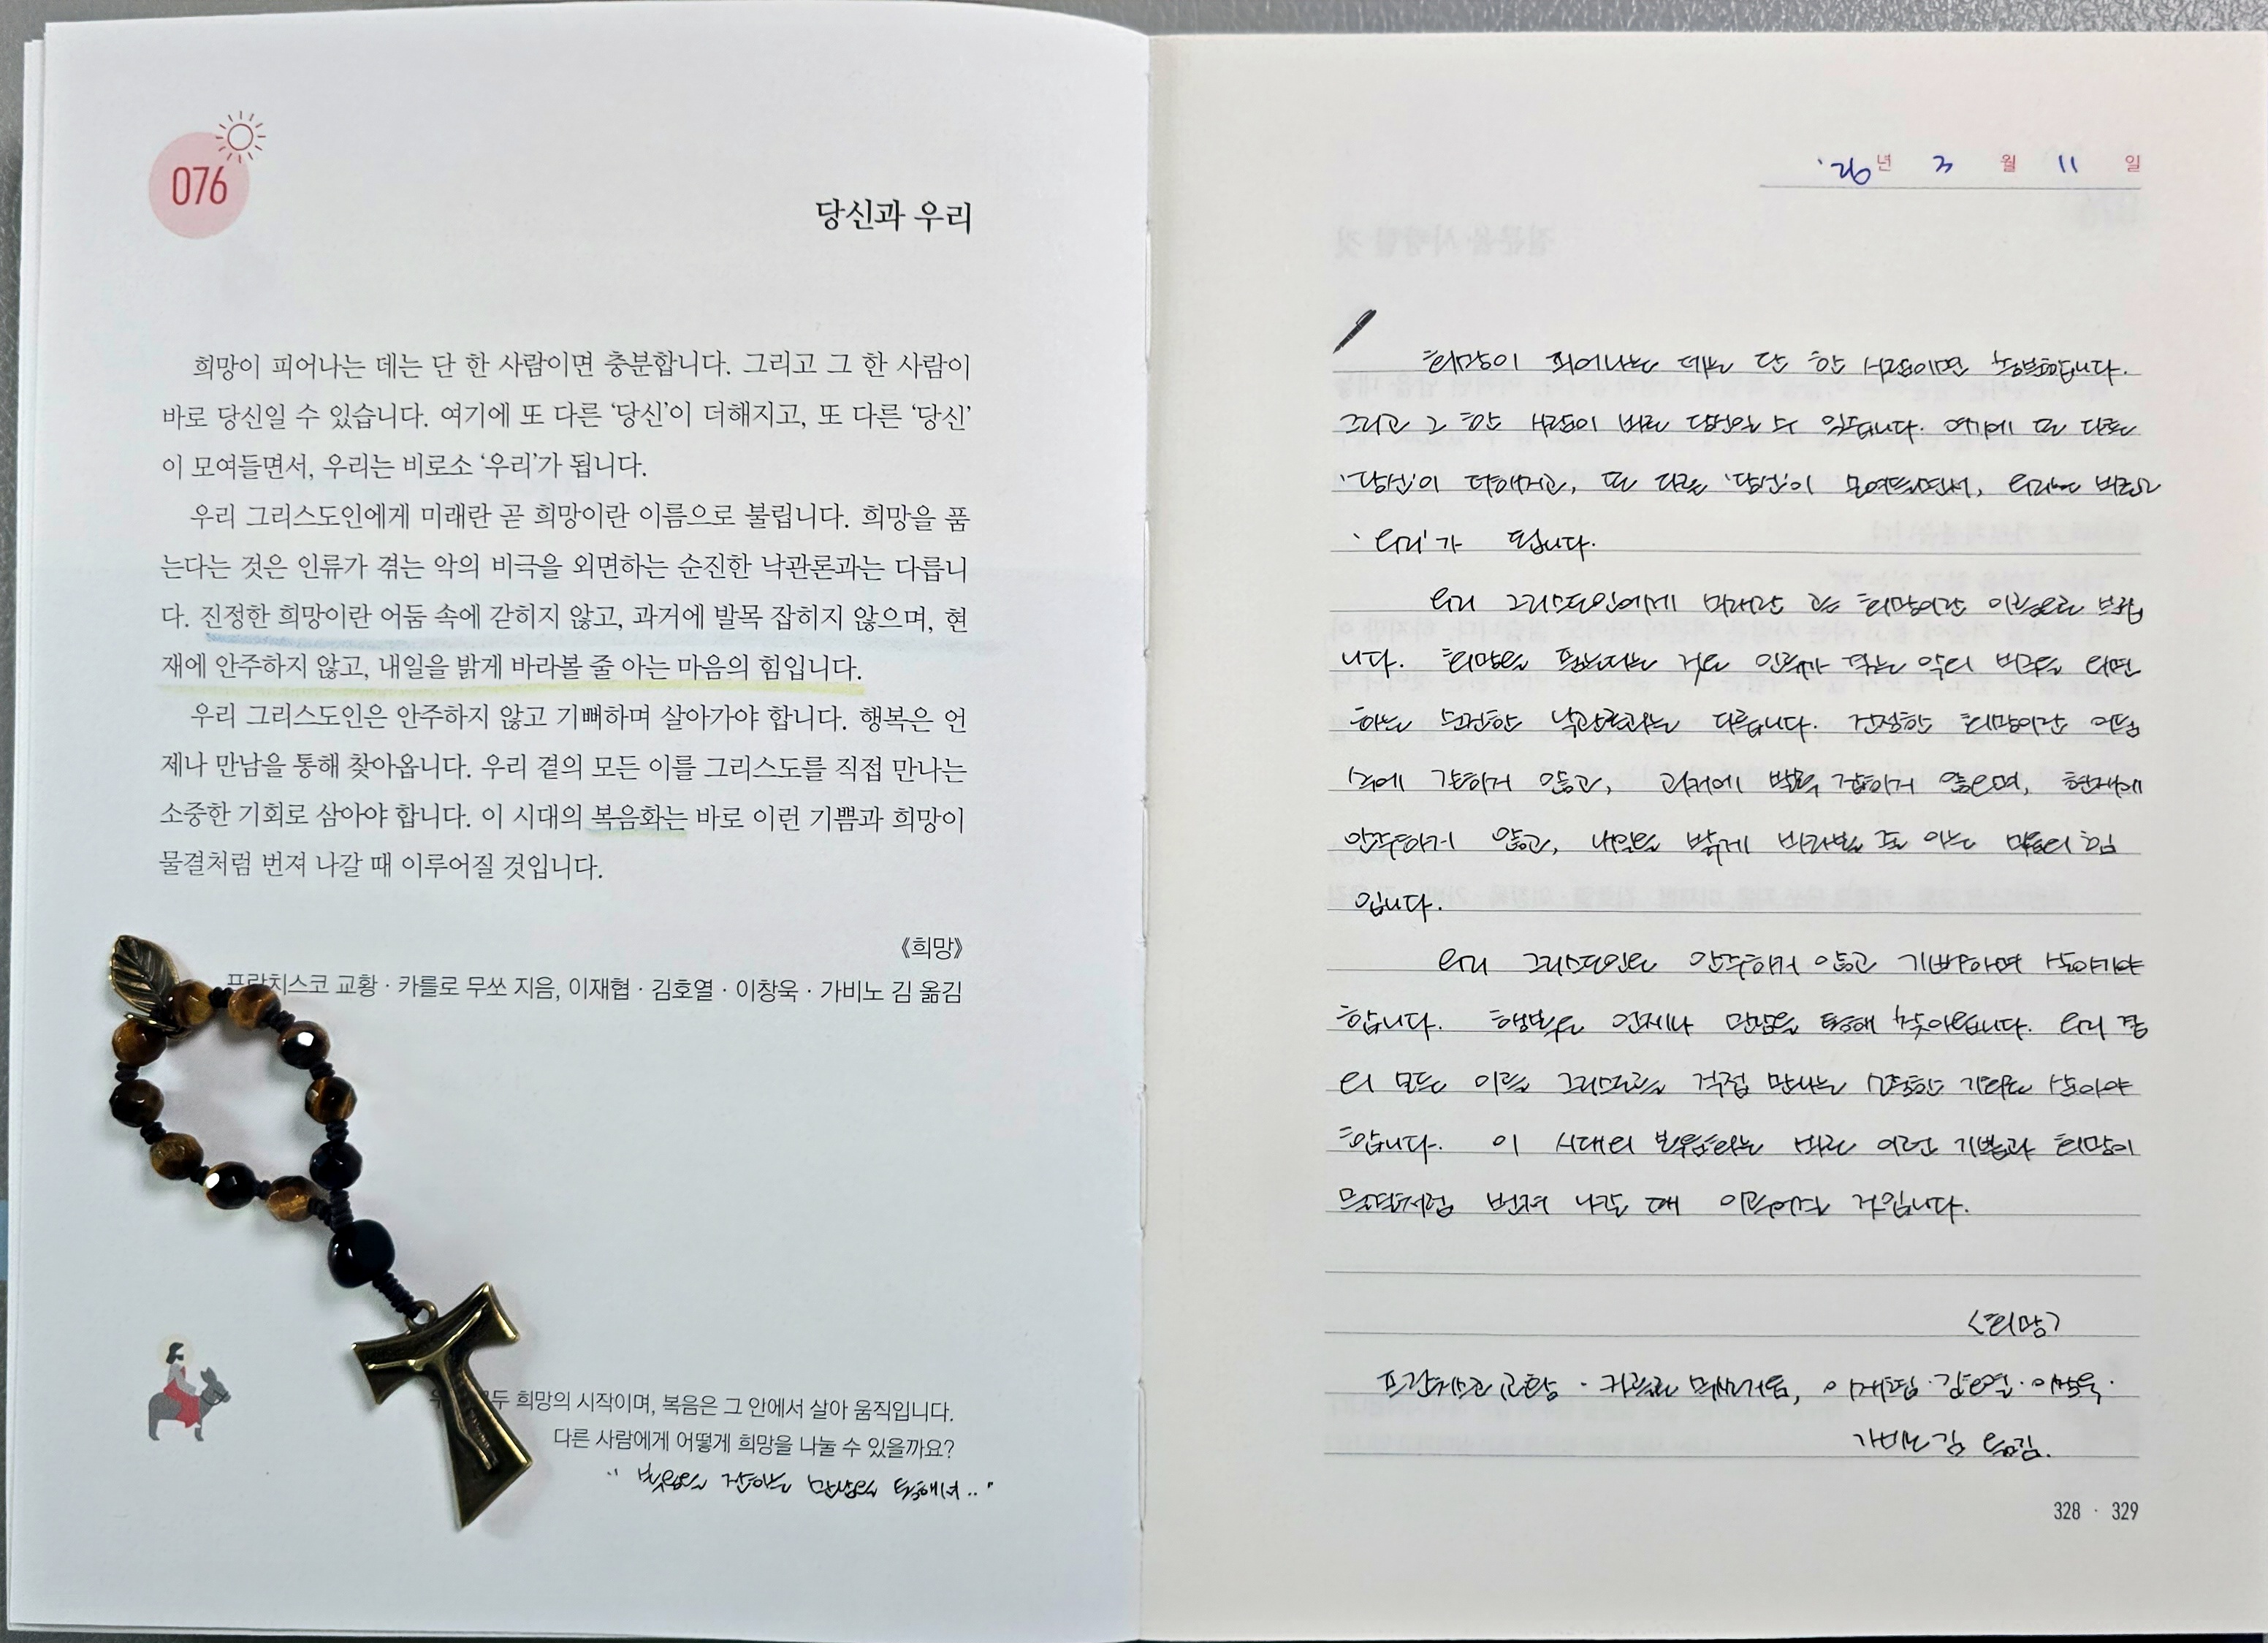 076
당신과 우리
희망이 피어나는 데는 단 한 사람이면 충분합니다. 그리고 그 한 사람이
바로 당신일 수 있습니다. 여기에 또 다른 ‘당신’이 더해지고, 또 다른 ‘당신’
이 모여들면서, 우리는 비로소 ‘우리’가 됩니다.
우리 그리스도인에게 미래란 곧 희망이란 이름으로 불립니다. 희망을 품
는다는 것은 인류가 겪는 악의 비극을 외면하는 순진한 낙관론과는 다릅니
다. 진정한 희망이란 어둠 속에 갇히지 않고, 과거에 발목 잡히지 않으며, 현
재에 안주하지 않고, 내일을 밝게 바라볼 줄 아는 마음의 힘입니다.
우리 그리스도인은 안주하지 않고 기뻐하며 살아가야 합니다. 행복은 언
제나 만남을 통해 찾아옵니다. 우리 곁의 모든 이를 그리스도를 직접 만나는
소중한 기회로 삼아야 합니다. 이 시대의 복음화는 바로 이런 기쁨과 희망이
물결처럼 번져 나갈 때 이루어질 것입니다.
《희망》
프란치스코 교황 · 카를로 무쏘 지음, 이재협 · 김호열 · 이창욱 · 가비노 김 옮김
모두 희망의 시작이며, 복음은 그 안에서 살아 움직입니다.
다른 사람에게 어떻게 희망을 나눌 수 있을까요?
전하는 만남을 통해서.."
'26년 3월 11일
희망이 피어나는 데는 단 한 사람이면 충분합니다.
그리고 그 한 사람이 바로 당신일 수 있습니다. 여기에 또 다른
'당신'이 더해지고, 또 다른 '당신'이 모여들면서, 우리는 비로소
'우리'가 됩니다.
우리 그리스도인에게 미래란 곧 희망이란 이름으로 불립
니다. 희망을 품는다는 것은 인류가 겪는 악의 비극을 외면
하는 순진한 낙관론과는 다릅니다. 진정한 희망이란 어둠
속에 갇히지 않고, 과거에 발목 잡히지 않으며, 현재에
안주하지 않고, 내일을 밝게 바라볼 줄 아는 마음의 힘
입니다.
우리 그리스도인은 안주하지 않고 기뻐하며 살아가야
합니다. 행복은 언제나 만남을 통해 찾아옵니다. 우리 곁
의 모든 이를 그리스도를 직접 만나는 소중한 기회로 삼아야
합니다. 이 시대의 복음화는 바로 이런 기쁨과 희망이
물결처럼 번져 나갈 때 이루어질 것입니다.
<희망>
프란치스코 교황 · 카를로 무쏘 지음, 이재협 · 김호열 · 이창욱 ·
가비노 김 옮김.
328 · 329